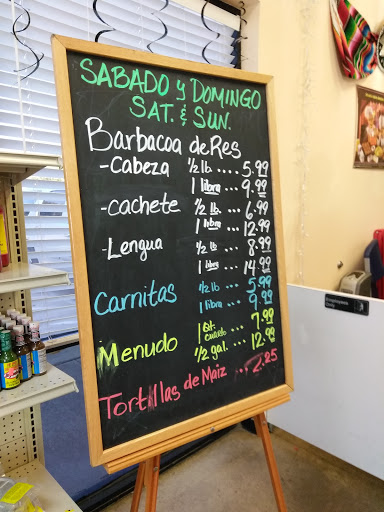 SABADO y DOMINGO
SAT. & SUN.
Barbacoa de Res
-Cabeza ½ lb. .... 5.99
1 libra ... 9.99
-cachete ½ lb. ... 6.99
1 libra ... 12.99
-Lengua ½ lb ... 8.99
1 libra ... 14.99
Carnitas ½ lb ... 5.99
1 libra ... 9.99
Menudo 1 Qt. cuarto ... 7.99
½ gal. ... 12.99
Tortillas de Maiz ... 2.25